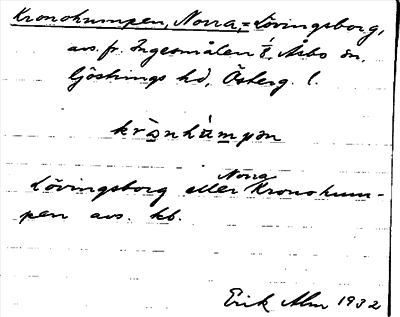 Kronohumpen, Norra, = Lövingsborg,
avs. fr. Ingesmålen i Åsbo sn,
Göstrings hd, Österg. l.
krònhúmpən
Lövingsborg eller Norra Kronohum-
pen avs. kb.
Erik Alm 1932